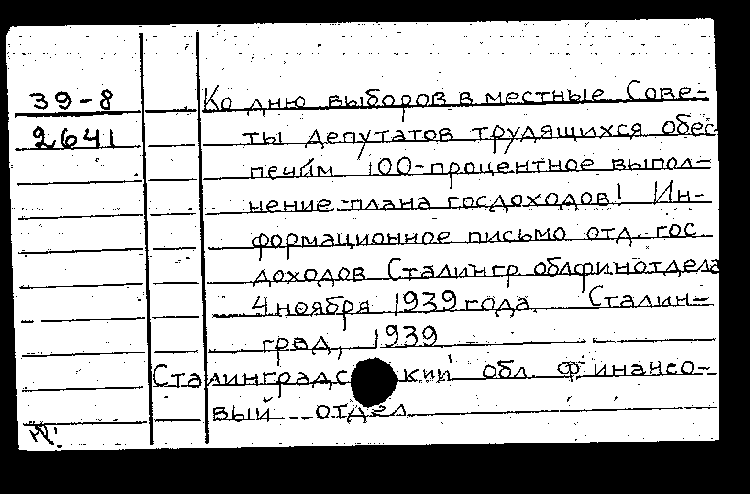 39-8
2641
Ко дню выборов в местные Сове-
ты депутатов трудящихся обес
печим 100-процентное выпол-
нение плана госдоходов! Ин-
формационное письмо отд. гос.
доходов Сталингр облфинотдела
4 ноября 1939 года. Сталин-
град, 1939
Сталинградский обл. финансо-
вый отдел